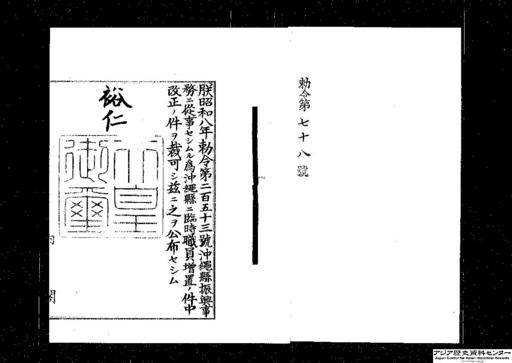 勅令第七十八號
朕昭和八年勅令第二百五十三號沖繩縣振興事
務ニ從事セシムル爲沖繩縣ニ臨時職員增置ノ件中
改正ノ件ヲ裁可シ玆ニ之ヲ公布セシム
裕仁
天皇
御璽
内閣
アジア歴史資料センター
Japan Center for Asian Historical Records